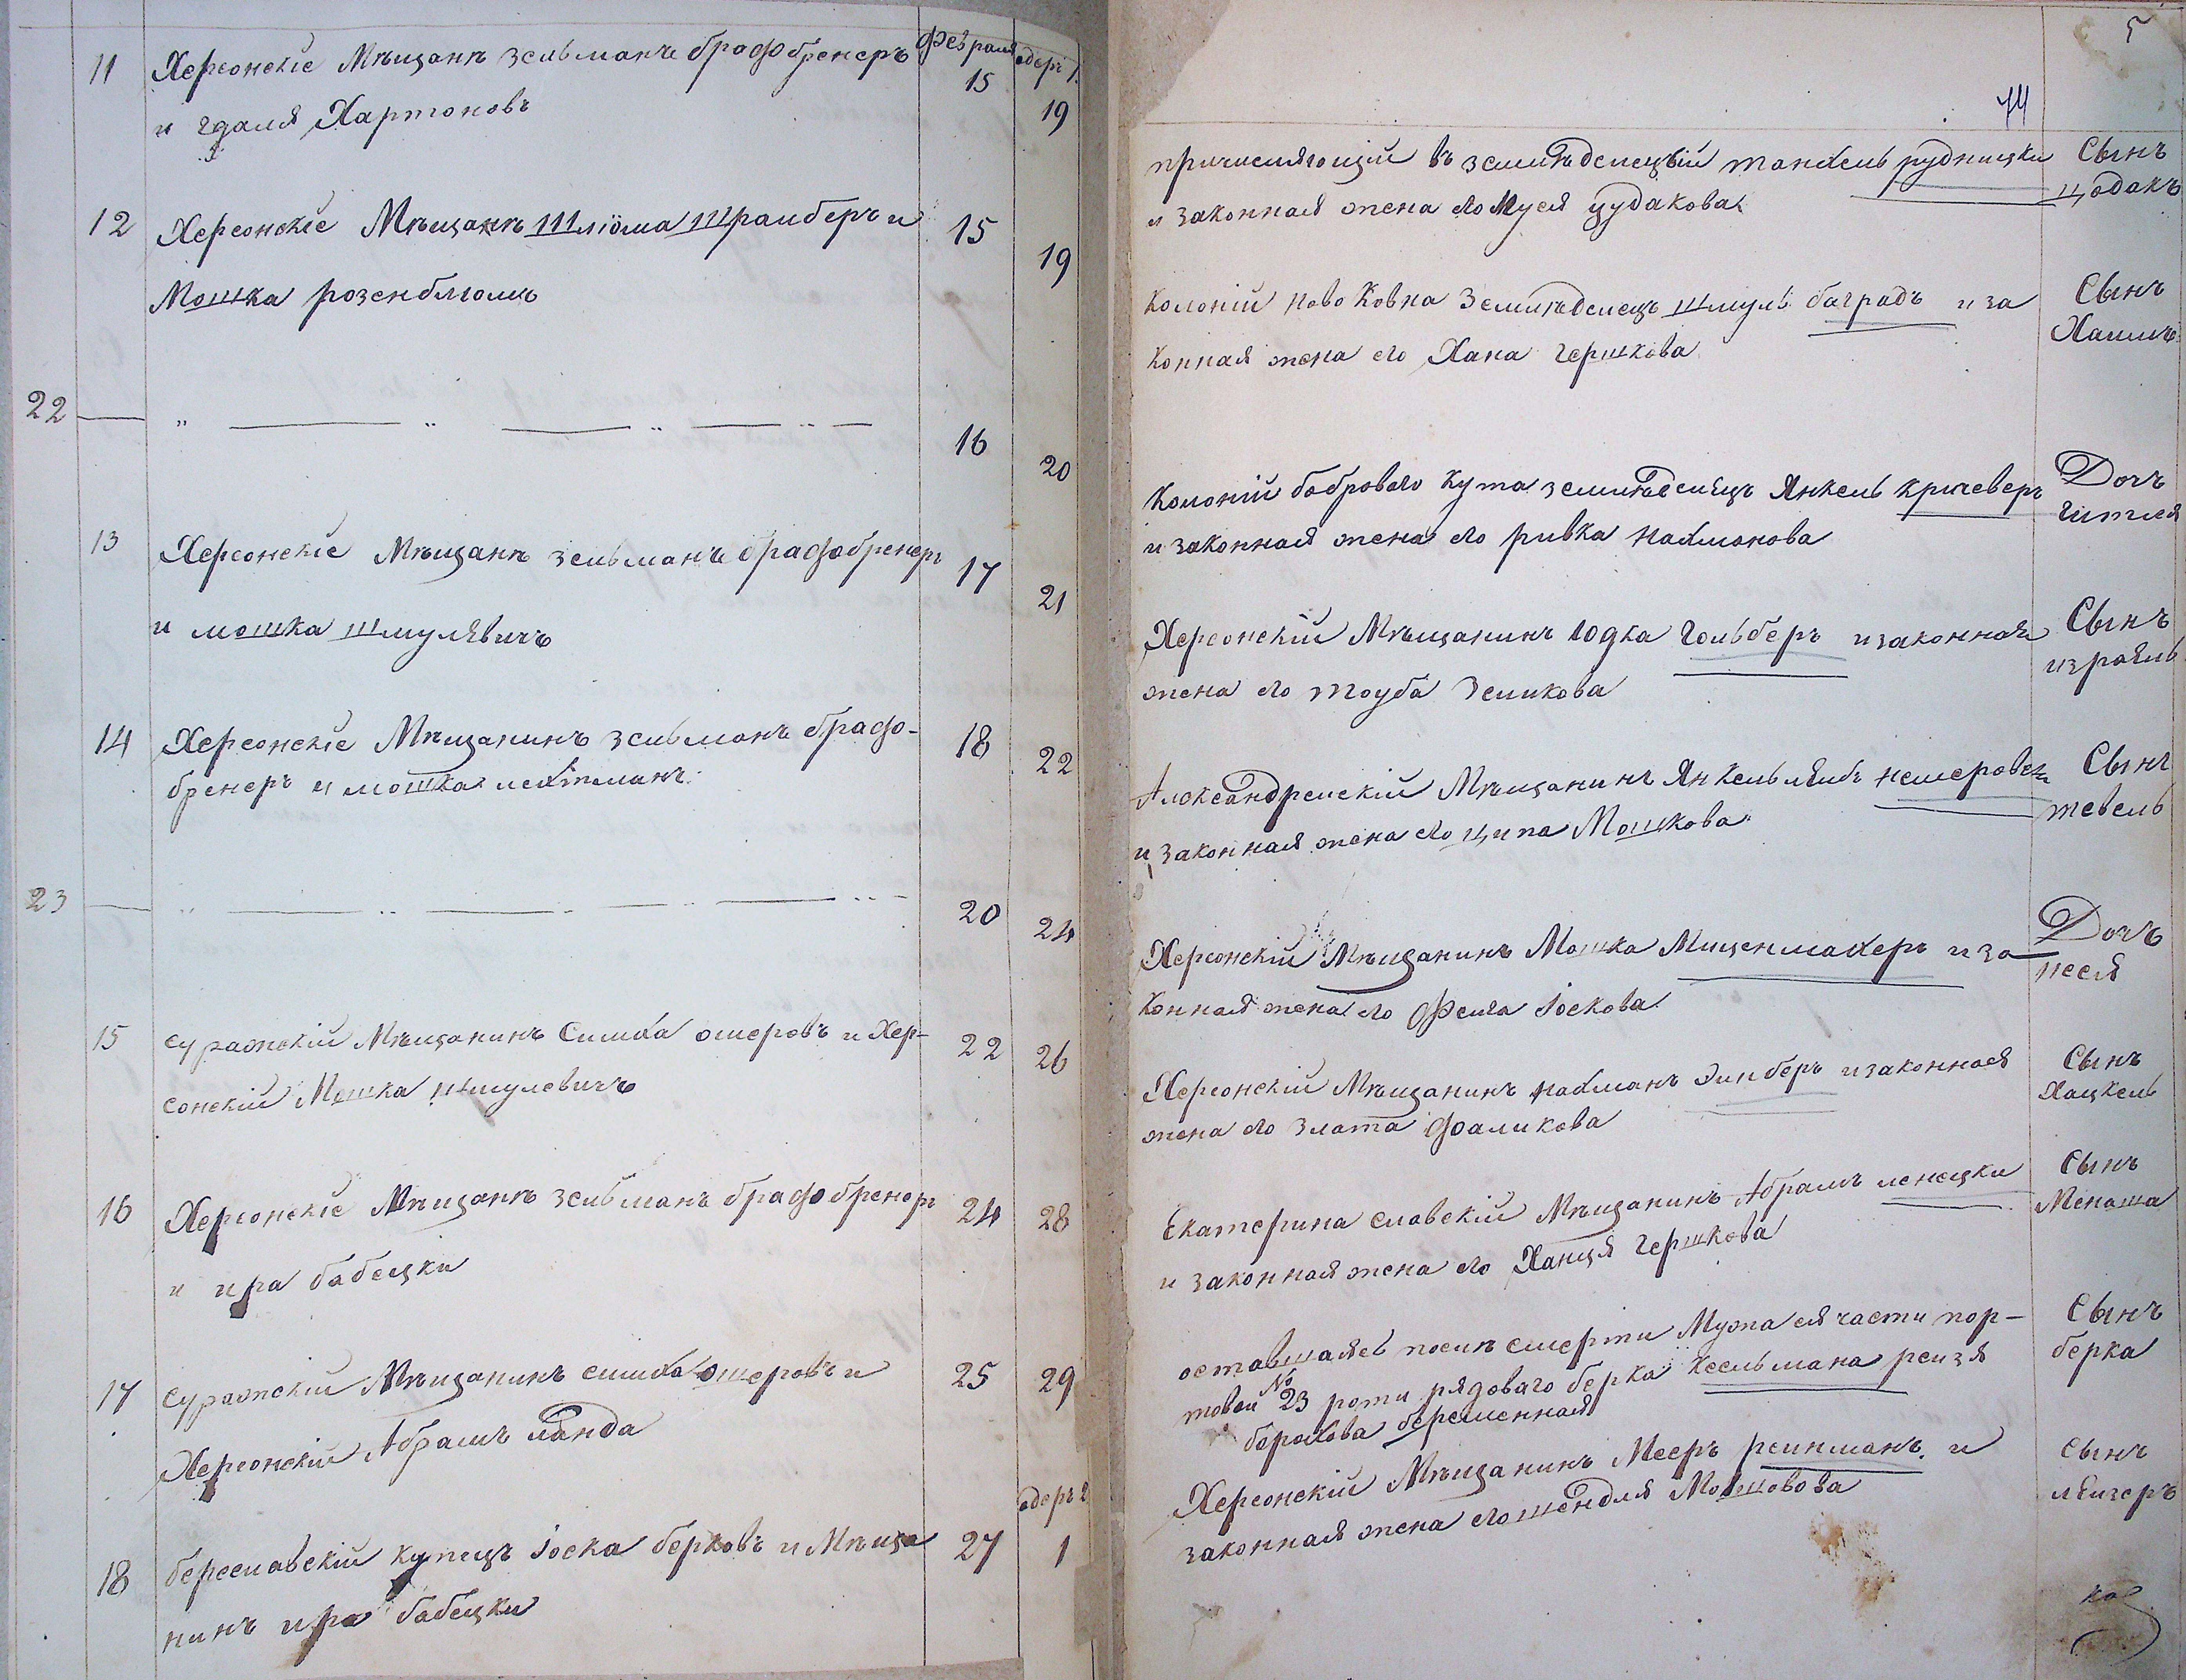 Февраля
адеръ 1.
11 Херсонскіе Мѣщанѣ Зельманъ брафобренеръ 15 19
и гдаля Хартоновъ
12 Херсонскіе Мѣщанѣ Шлюма Шрамберъ и 15 19
Мошка розенблюмъ
22 16 20
13 Херсонскіе Мѣщанѣ зельманъ брафобренеръ 17 21
и мошка шмулявичъ
14 Херсонскіе Мѣщанинъ зельманъ брафо- 18 22
бренеръ и мошка лехтманъ
23 20 24
15 суражскій Мѣщанинъ Симха ошеровъ и Хер- 22 26
сонскій Мошка шмулевичъ
16 Херсонскіе Мѣщанѣ зельманъ брафобренеръ 24 28
и ира бабецки
17 суражскій Мѣщанинъ симха ошеровъ и 25 29
Херсонскій Абрамъ ланда
адеръ 2
18 береславскій купецъ Іоска берковъ и Мѣща 27 1
нинъ ира бабецки
5
44
причисляющій въ земледелецъій танхель рудницки Сынъ
и законная жена его Муся цудакова цодакъ
Колоній Ново Ковна Земледелецъ шмуль баградъ и за Сынъ
конная жена его Хана гершкова Хаимъ
Колоній боброваго Кута земледелецъ Янкель кричеверъ Дочъ
и законная жена его ривка Нахманова гитля
Херсонскій Мѣщанинъ юдка гольберъ и законная Сынъ
жена его тоуба Зеликова израиль
Александрейскій Мѣщанинъ Янкель лейбъ немеровец Сынъ
и законная жена его ципа Мошкова тевель
Херсонскій Мѣщанинъ Мошка Мищенмахеръ и за Дочъ
конная жена его Фейга Іоскова неся
Херсонскій Мѣщанинъ нахманъ Эинберъ и законная Сынъ
жена его Злата фаликова Хацкель
Екатерина славскій Мѣщанинъ Абрамъ ленецки Сынъ
и законная жена его Ханця Гершкова Менаша
оставшаяся послѣ смерти Мужа ея части пор- Сынъ
товой № 23 роти рядоваго берка Кесельмана рейзя берка
борохова беременная
Херсонскій Мѣщанинъ Мееръ рейнманъ и Сынъ
законная жена его шендля Мошовова лейзеръ
ка